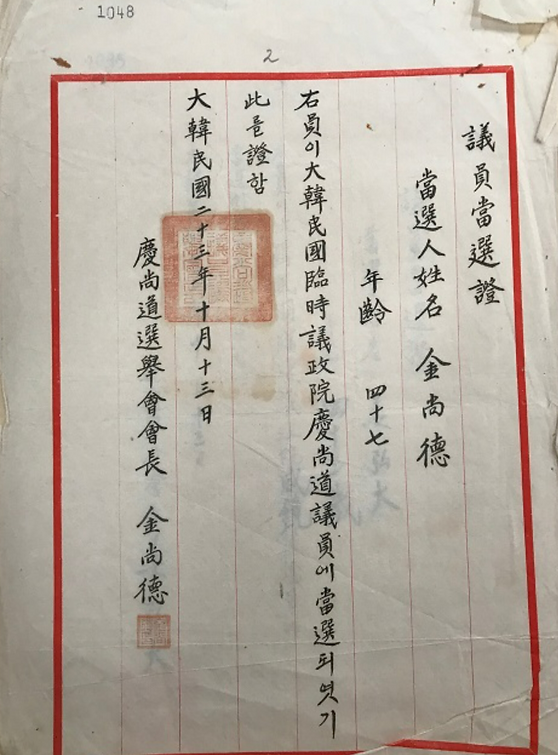 1048
2
議員當選證
當選人姓名 金尚德
年齡 四十七
右員이大韓民國臨時議政院慶尚道議員에當選되엿기
此를證함
大韓民國二十三年十月十三日
慶尚道選舉會會長 金尚德